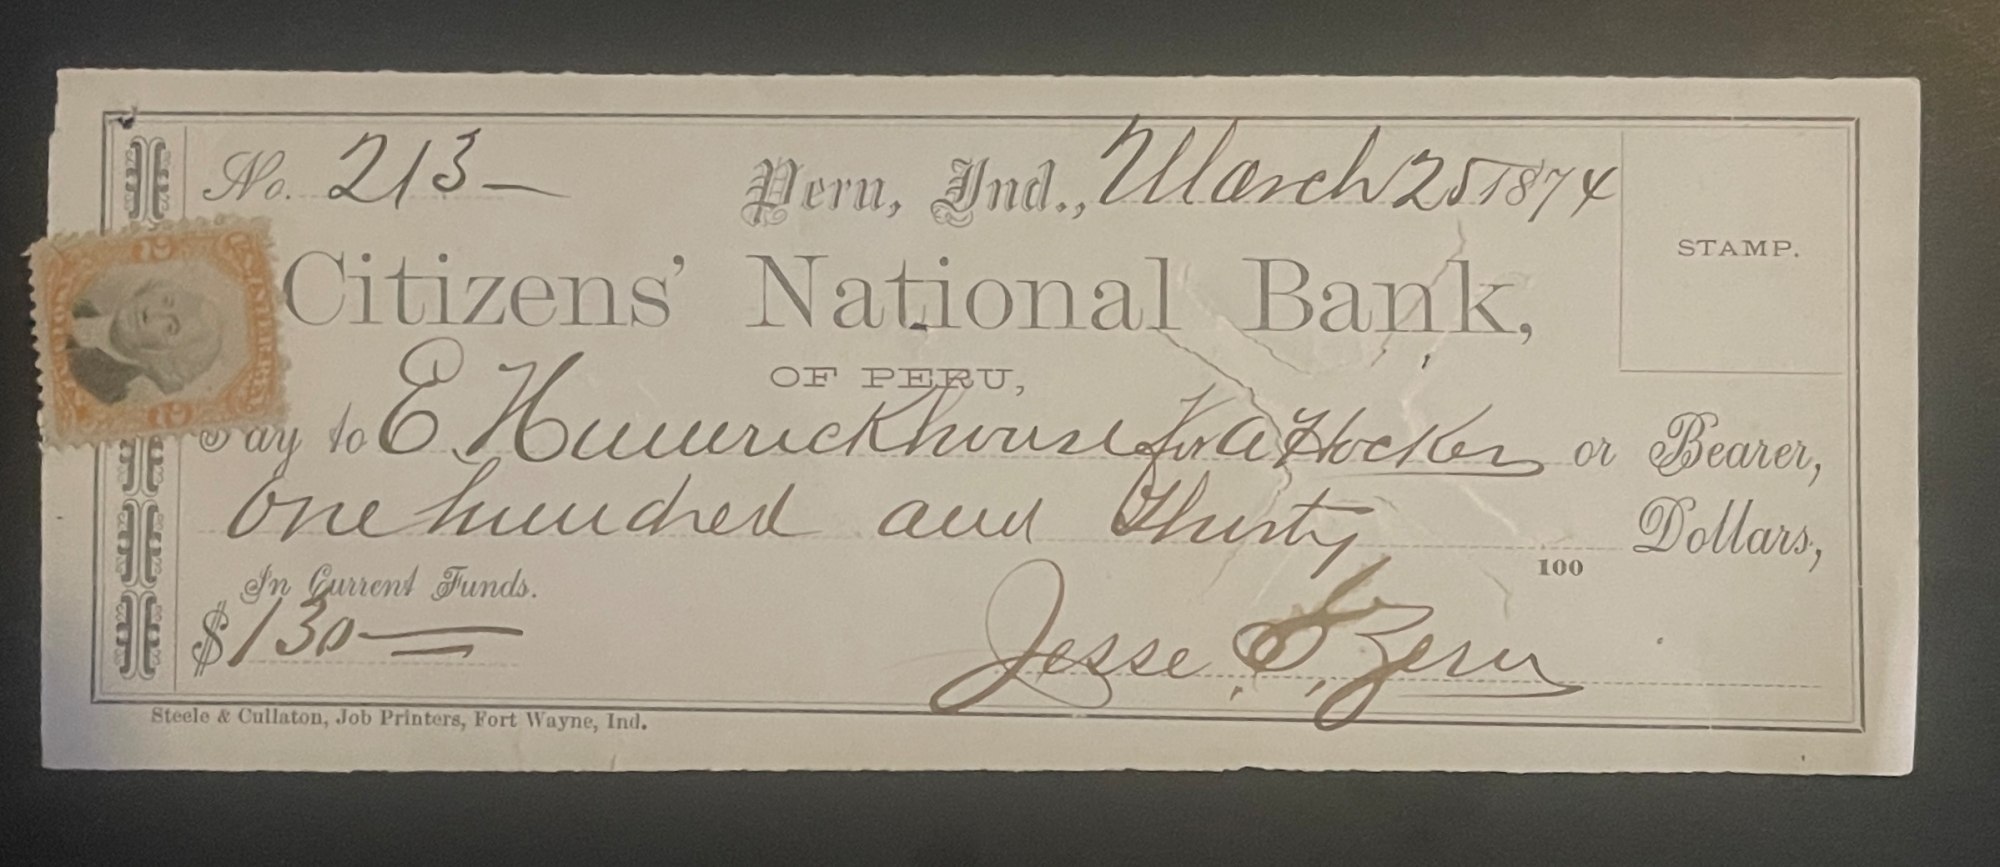 No. 213 Peru, Ind., March 25 1874
STAMP.
Citizens' National Bank,
OF PERU,
Pay to E. Humrickhouse for A Hocker or Bearer,
One hundred and Thirty 100 Dollars,
In Current Funds.
$130 Jesse S. Zern
Steele & Cullaton, Job Printers, Fort Wayne, Ind.